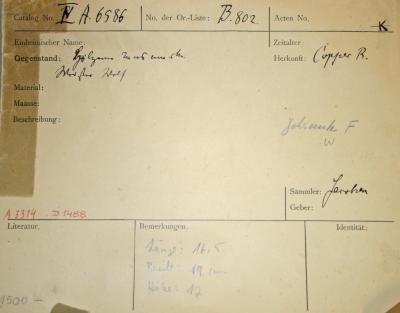 Catalog No. IV A. 6586 No. der Or.-Liste: B. 802 Acten No. K
Einheimischer Name: Zeitalter:
Gegenstand: Herkunft: Copper R.
Wolf
Material:
Maasse:
Beschreibung: Schrank F
W
Sammler: Jacobsen
Geber:
A 3314 D 1488
Literatur, Bemerkungen, Identität:
Länge: 16,5
Breite: 19 cm
Höhe: 12
1500 —